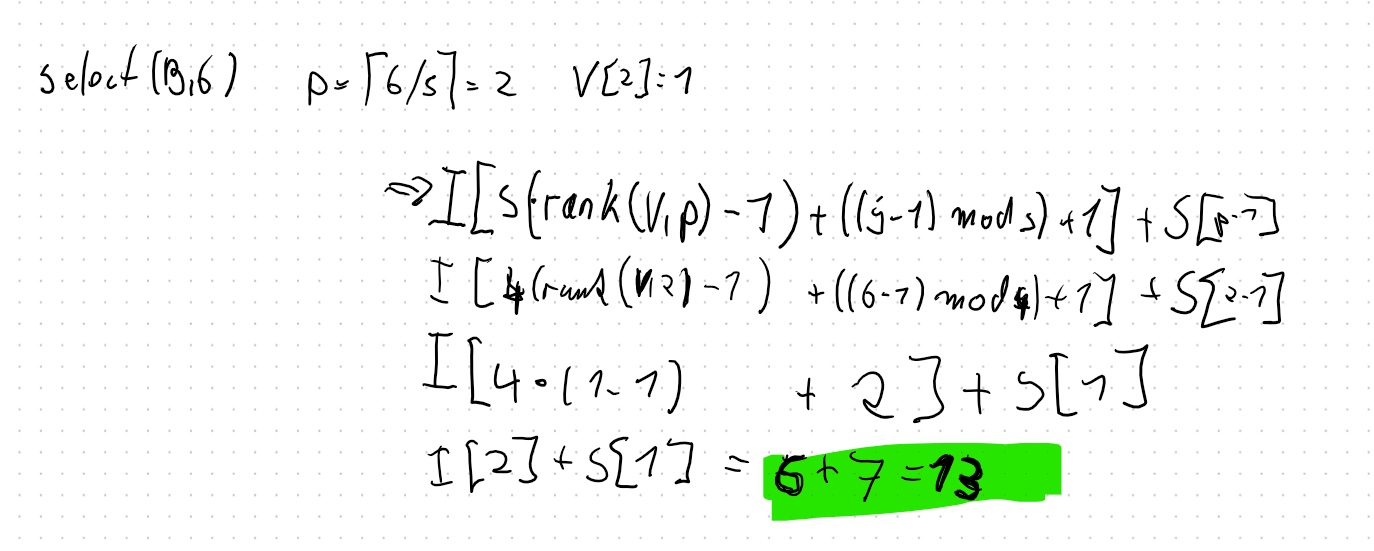 select(B,6) p=⌈6/s⌉=2 V[2]=1
⇒ I[s(rank(V,p)-1)+((j-1) mod s)+1] + S[p-1]
I [4(rank(V,2)-1) +((6-1) mod 4)+1] + S[2-1]
I[4·(1-1) + 2] + S[1]
I[2]+S[1] = 6+7=13